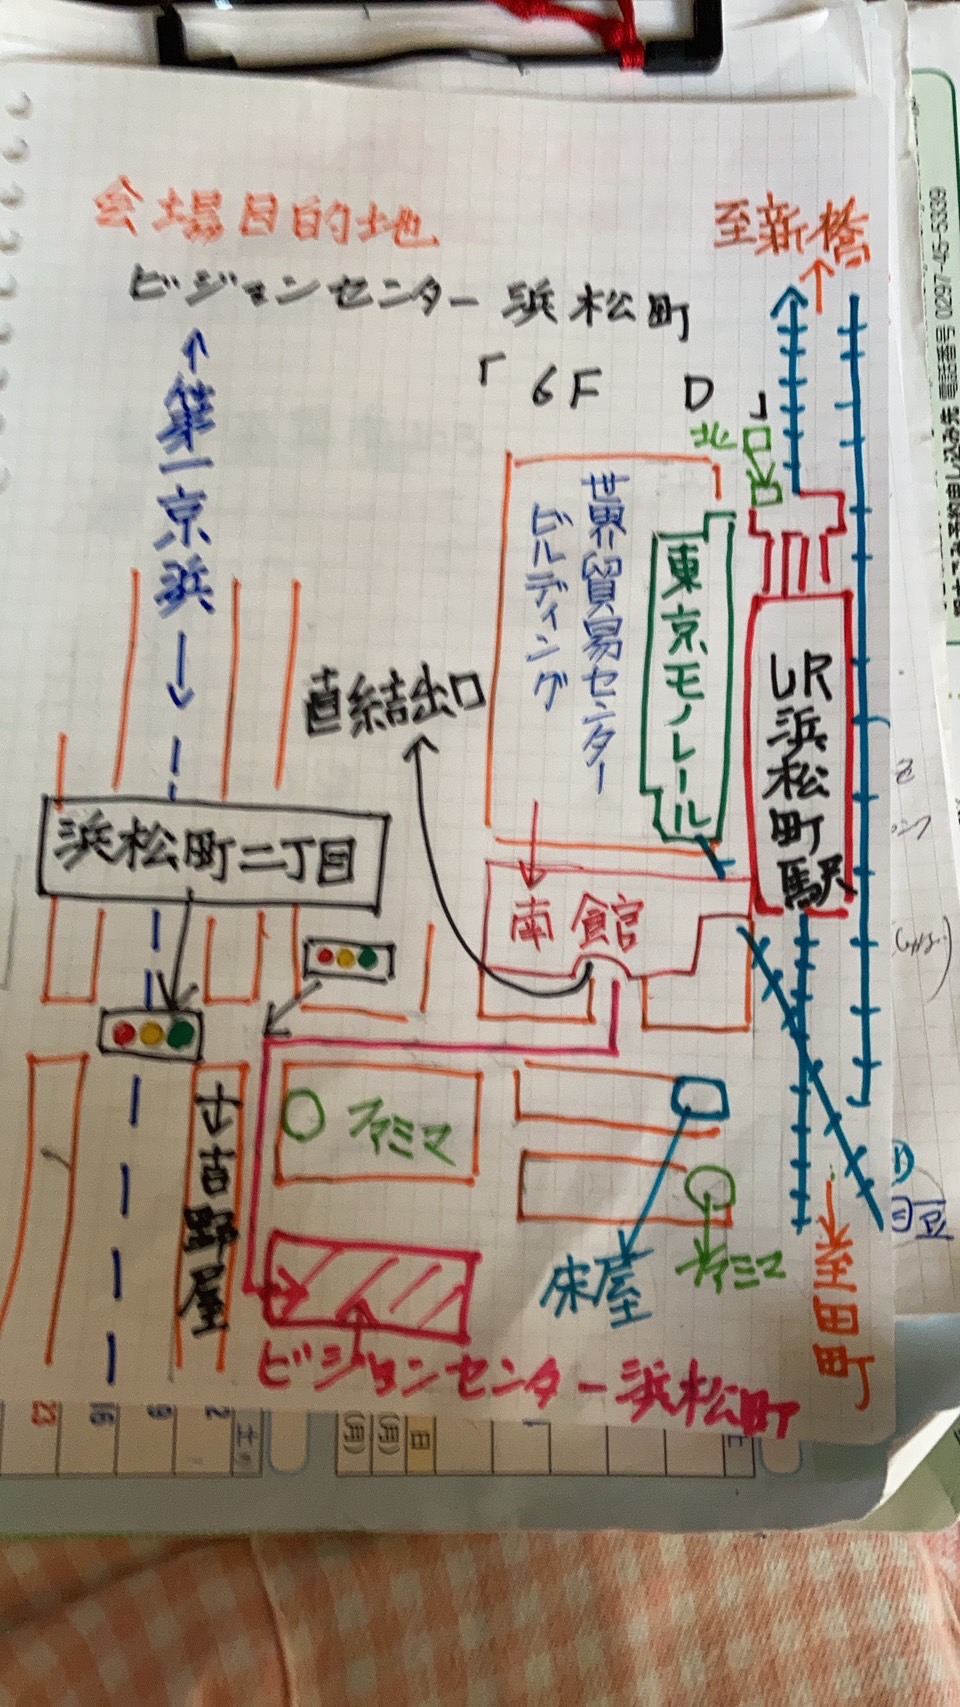 会場目的地
至新橋
ビジョンセンター浜松町
「6F D」
北口
第一京浜
世界貿易センター
ビルディング
東京モノレール
直結出口
JR浜松町駅
浜松町二丁目
南館
ファミマ
吉野屋
床屋
ファミマ
至田町
ビジョンセンター浜松町
電話番号 0297-45-5339
23
16
9
2
土
(月)
(月)
日